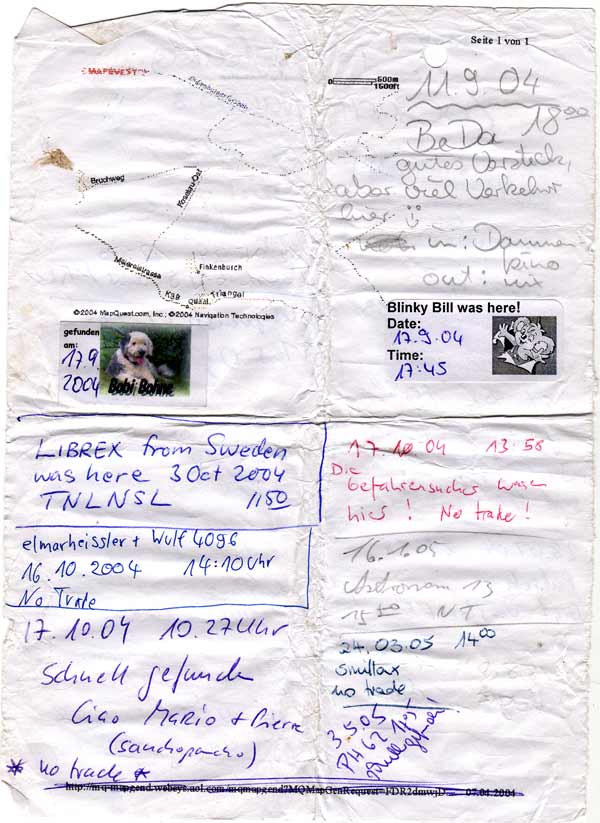 Seite 1 von 1
MAPQUEST
500m
1500ft
Bruchweg
Finkenbusch
Triangel
©2004 MapQuest.com, Inc.; ©2004 Navigation Technologies
11.9.04
18⁰⁰
BeDa
gutes Versteck,
aber viel Verkehr
hier
in: Dammen
kino
out: nix
gefunden
am:
17.9.
2004
Bobi Bohne
Blinky Bill was here!
Date:
17.9.04
Time:
17:45
LIBREX from Sweden
was here 3 Oct 2004
TNLNSL 1150
elmarheissler + Wulf 4096
16.10.2004 14:10 Uhr
No Trade
17.10.04 10.27 Uhr
Schnell gefunden
Ciao Mario + Pierre
(sanchopancho)
* no trade *
17 10 04 13:56
Die
Gefahrensucher waren
hier! No trade!
16.1.05
Astronom 13
15⁵⁰ NT
24.03.05 14⁰⁰
smultax
no trade
3.5.05
PH 62
http://mq-mapgend.websys.aol.com/mqmapgend?MQMapGenRequest=FDR2dmwjD 07.04.2004